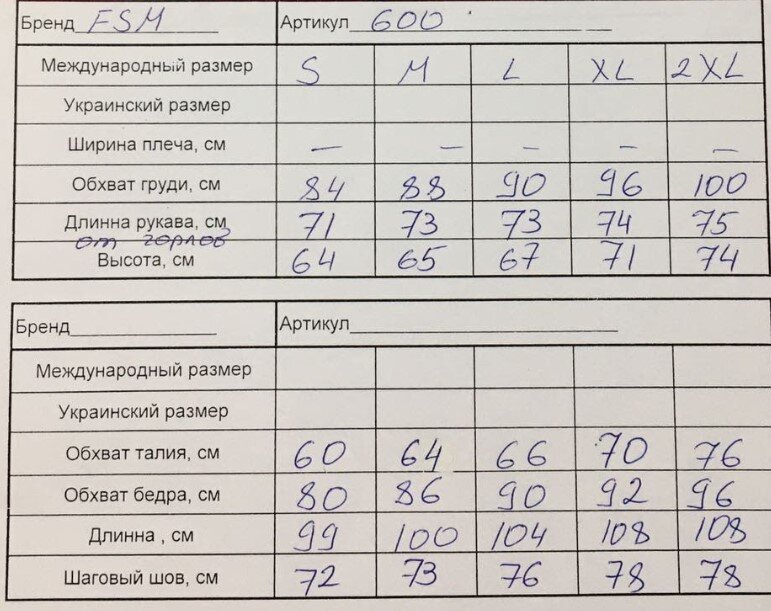 Бренд FSM Артикул 600
Международный размер S M L XL 2XL
Украинский размер
Ширина плеча, см — — — — —
Обхват груди, см 84 88 90 96 100
Длинна рукава, см 71 73 73 74 75
от горлов
Высота, см 64 65 67 71 74
Бренд Артикул
Международный размер
Украинский размер
Обхват талия, см 60 64 66 70 76
Обхват бедра, см 80 86 90 92 96
Длинна , см 99 100 104 108 108
Шаговый шов, см 72 73 76 78 78